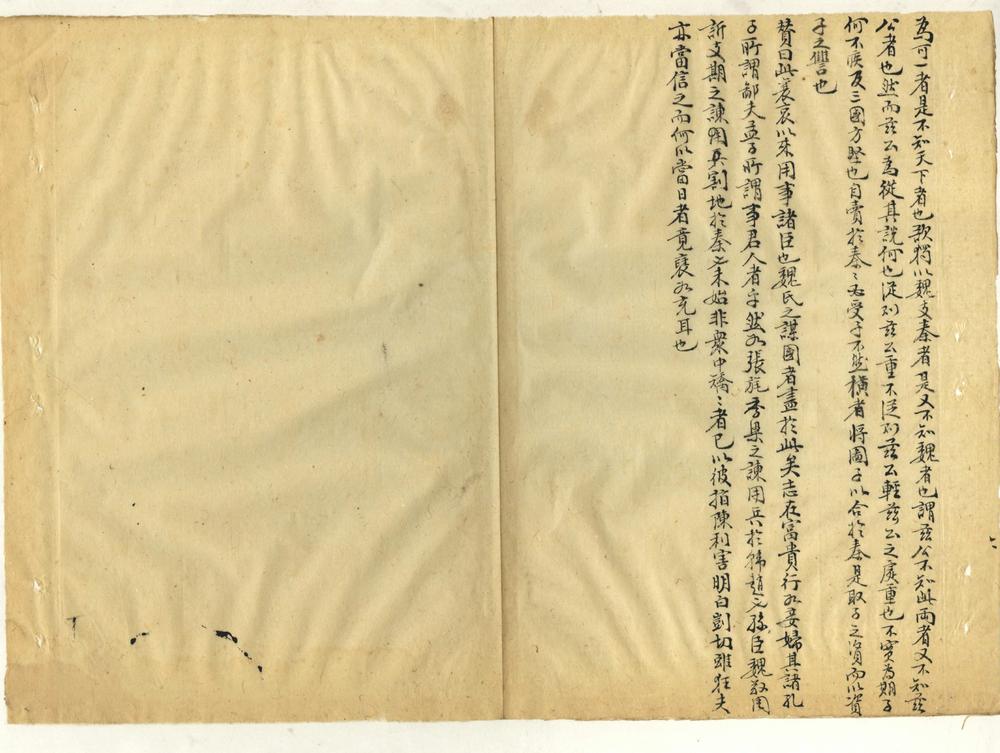 為可一者是不知天下者也欲獨以魏支秦者是又不知魏者也謂茲公不知此兩者又不知茲
公者也然而茲公為從其說何也從則茲公重不從則茲公輕茲公之處重也不實為期子
何不疾及三國方堅也自賣於秦〻必受子不然橫者將圖子以合於秦是取子之資而以資
子之讐也
贊曰此襄哀以來用事諸臣也魏氏之謀國者盡於此矣志在富貴行如妾婦其諸孔
子所謂鄙夫孟子所謂事君人者乎然如張旄季梁之諫用兵於韓趙也孫臣魏敬周
訢支期之諫用兵割地於秦也未始非衆中矯〻者已以彼指陳利害明白剴切雖狂夫
亦當信之而何以當日者竟襃如充耳也